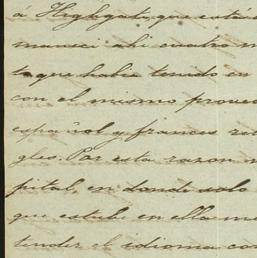 á Highgate, que está
manecí ahi cuatro m
to que habia tenido en
con el mismo provec
español y frances
gles. Por esta razon
pital, en donde solo
que estube en ella me
tender el idioma co